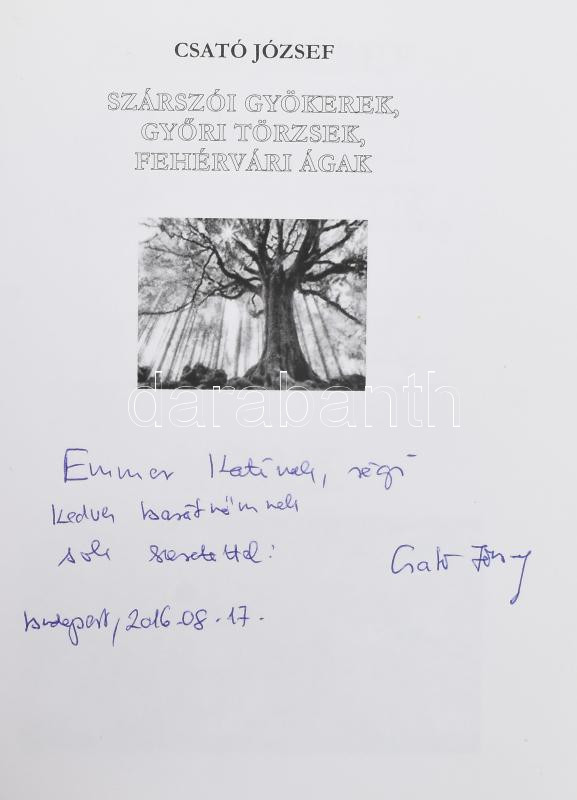 CSATÓ JÓZSEF
SZÁRSZÓI GYÖKEREK,
GYŐRI TÖRZSEK,
FEHÉRVÁRI ÁGAK
darabanth
Emmer Katinak, régi
kedves barátnőmnek
sok szeretettel:
Csató József
Budapest, 2016.08.17.